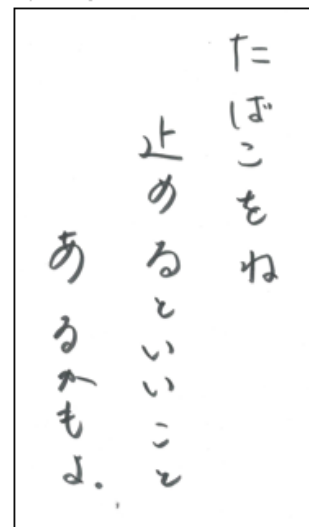 たばこをね
止めるといいこと
あるかもよ.